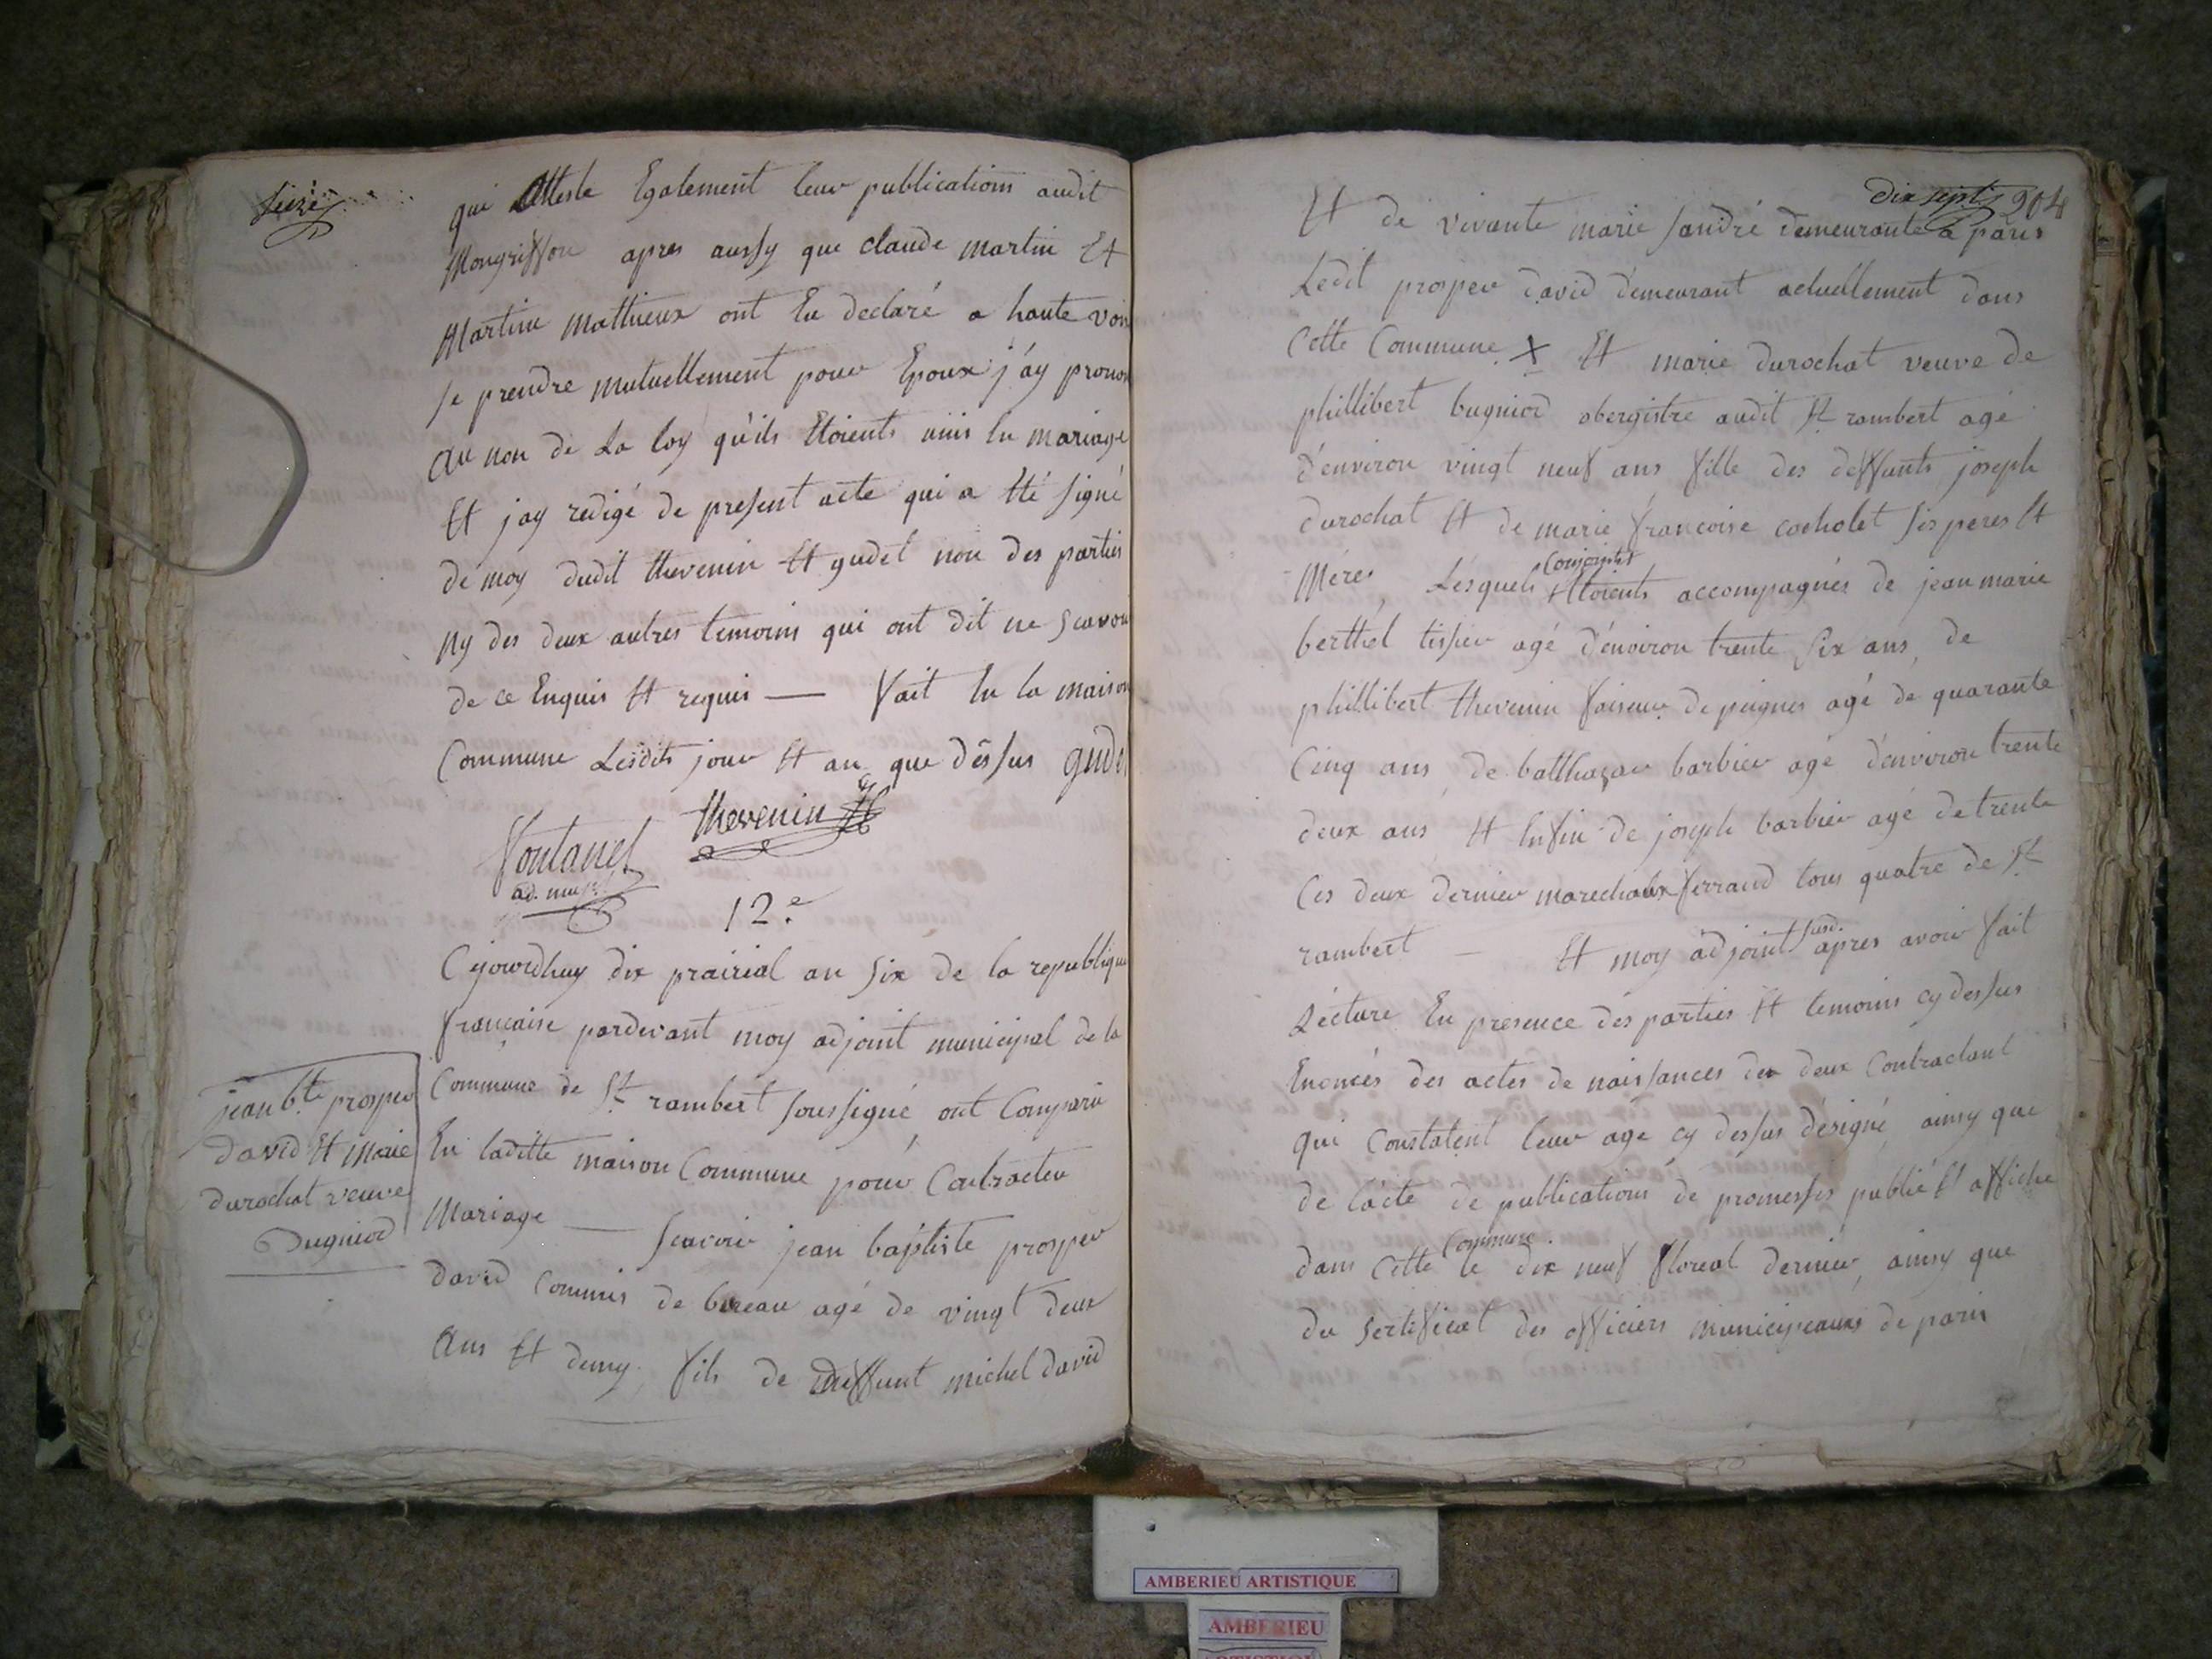 seize
qui atteste Egalement leur publications audit
Mongriffon apres aussy que claude martin Et
Martine Mathieux ont En declaré a haute voix
se prendre mutuellement pour Epoux j'áy pronon
au non de La loy qu'ils Etoients unis En mariage
Et jay redigé de present acte qui a Eté signé
de moy dudit thevenin Et gudet non des parties
ny des deux autres temoins qui ont dit ne scavoir
de ce Enquis Et requis — fait En la maison
Commune Lesdits jour Et an que déssus gudet
thevenin
fontanel
ad. mup.
12.e
Cejourdhuy dix prairial an six de la republique
française pardevant moy adjoint municipal de la
Commune de St rambert soussigné, ont Comparu
En laditte maison Commune pour Contracter
Mariage — scavoir jean baptiste prosper
david commis de bureau agé de vingt deux
ans Et demy, fils de deffunt michel david
jean b.te prosper
david Et Marie
durochat veuve
Bugniod
dix sept 204
Et de vivante marie sandré demeurante a paris
Ledit prosper david demeurant actuellement dans
Cette Commune X Et marie durochat veuve de
phillibert bugniod obergistre audit St rambert agé
d'environ vingt neuf ans fille des deffunts joseph
durochat Et de marie francoise cocholet ses peres Et
Méres, Lesquels Conjoints Etoients accompagnés de jean marie
berthel tissier agé d'énviron trente six ans, de
phillibert thevenin faiseur de peignes agé de quarante
Cinq ans, de balthazar barbier agé d'environ trente
deux ans Et Enfin de joseph barbier agé de trente
Ces deux dernier marechaux ferrand tous quatre de St
rambert — Et moy adjoint susd. apres avoir fait
Lécture En presence dés parties Et temoins cy dessus
Enoncés des actes de naissances des deux Contractant
qui Constatent leur age cy dessus désigné, ainsy que
de lácte de publications de promesses publié Et affiche
dans Cette Commune le dix neuf floreal dernier, ainsy que
du sertificat des officiers municipeaux de paris
AMBERIEU ARTISTIQUE
AMBERIEU
ARTISTIQUE